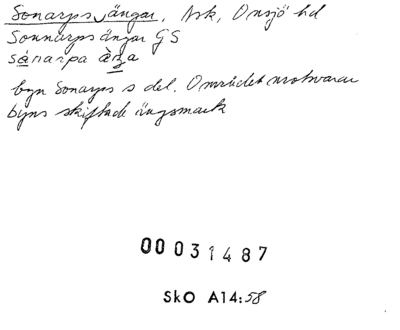 Sonarps ängar, Ask, Onsjö hd
Sonnarps ängar GS
sånarpa àŋa
byn Sonarps s del. Området motsvarar
byns skiftade ängsmark
00031487
SkO A14:58